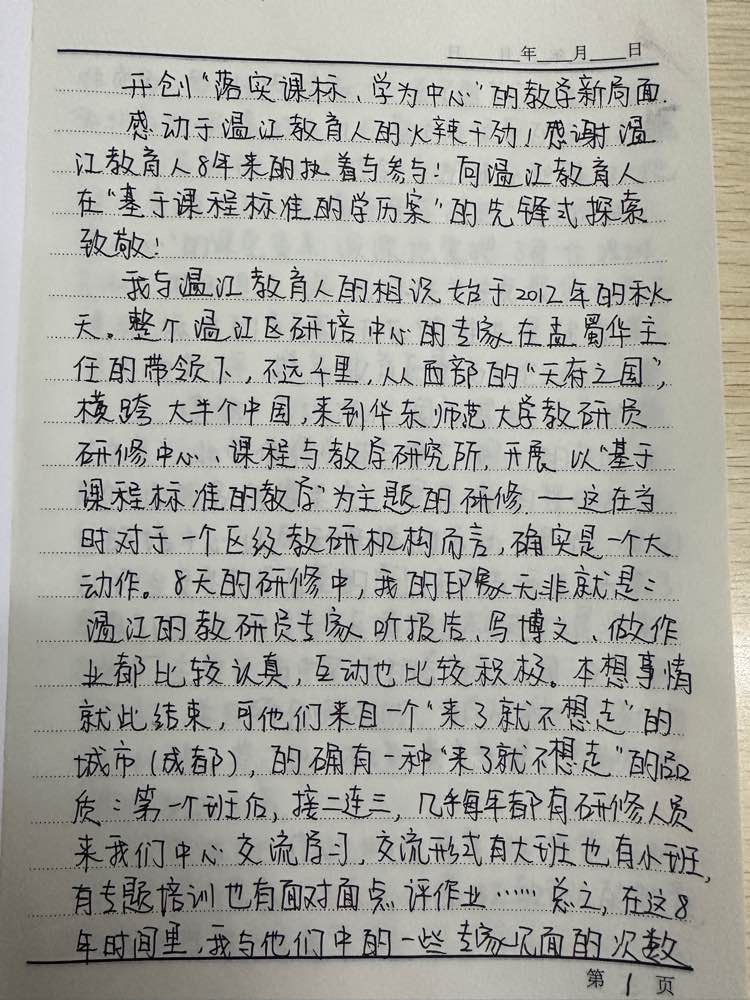 年 月 日
开创“落实课标、学为中心”的教学新局面.
感动于温江教育人的火辣干劲！感谢温
江教育人8年来的执着与参与！向温江教育人
在“基于课程标准的学历案”的先锋式探索
致敬！
我与温江教育人的相识始于2012年的秋
天。整个温江区研培中心的专家在孟蜀华主
任的带领下，不远千里，从西部的“天府之国”，
横跨大半个中国，来到华东师范大学教研员
研修中心、课程与教学研究所，开展以“基于
课程标准的教学”为主题的研修——这在当
时对于一个区级教研机构而言，确实是一个大
动作。8天的研修中，我的印象无非就是：
温江的教研员专家听报告、写博文、做作
业都比较认真，互动也比较积极。本想事情
就此结束，可他们来自一个“来了就不想走”的
城市（成都），的确有一种“来了就不想走”的品
质：第一个班后，接二连三，几乎每年都有研修人员
来我们中心交流学习，交流形式有大班也有小班，
有专题培训也有面对面点评作业……总之，在这8
年时间里，我与他们中的一些专家见面的次数
第 1 页